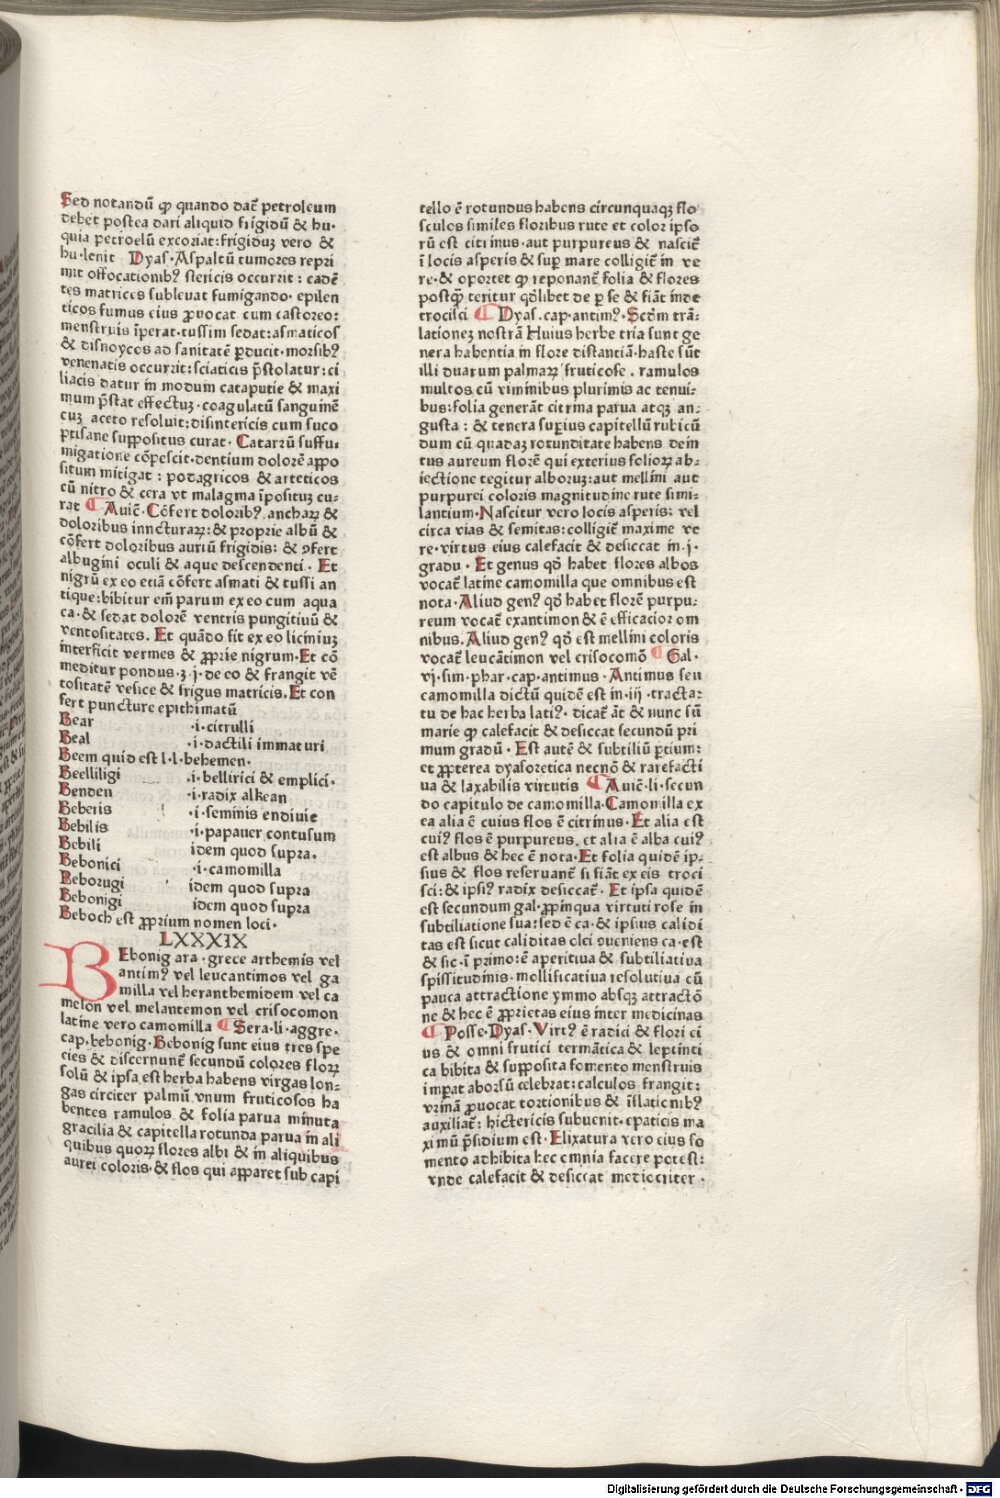 Sed notandū ꝙ quando dat᷑ petroleum
debet postea dari aliquid frigidū & hu·
quia petroelū excoriat:frigiduȝ vero &
hu·lenit Dyas·Aspaltū tumores repri
mit offocationibꝰ stericis occurrit : cadē
tes matrices subleuat fumigando· epilen
ticos fumus eius ꝓuocat cum castoreo:
menstruis īperat·tussim sedat:asmaticos
& disnoycos ad sanitatē ꝑducit·morsibꝰ
venenatis occurrit:sciaticis p̄stolatur:ci
liacis datur in modum cataputie & maxi
mum p̄stat effectuȝ·coagulatū sanguinē
cuȝ aceto resoluit:disintericis cum suco
ptisane suppositus curat· Catarrū suffu-
migatione cōpescit·dentium dolorē appo
situm mitigat : podagricos & arteticos
cū nitro & cera vt malagma īposituȝ cu-
rat ¶ Auiē· Cōfert doloribꝰ ancharꝝ &
doloribus inncturarꝝ:& proprie albū &
cōfert doloribus auriū frigidis: & ꝯfert
albugini oculi & aque descendenti· Et
nigrū ex eo etiā cōfert asmati & tussi an
tique:bibitur em̄ parum ex eo cum aqua
ca·& sedat dolorē ventris pungitiuū &
ventositates. Et quādo fit ex eo liciniuȝ
interficit vermes & ꝓprie nigrum·Et cō
meditur pondus·ʒ·j·de eo & frangit vē
tositatē vesice & frigus matricis. Et con
fert puncture epithimatū
Bear ·i·citrulli
Beal ·i·dactili immaturi
Beem quid est l·l·behemen·
Beelliligi ·i·bellirici & emplici·
Benden ·i·radix alkean
Beberis ·i·seminis endiuie
Bebilis ·i·papauer contusum
Bebili idem quod supra.
Bebonici ·i·camomilla
Beborugi idem quod supra
Bebonigi idem quod supra
Beboch est ꝓprium nomen loci·
LXXXIX
BEbonig ara·grece arthemis vel
antimꝰ vel leucantimos vel ga
milla vel heranthemidem vel ca
melon vel melantemon vel crisocomon
latine vero camomilla ¶ Sera·li·aggre·
cap·bebonig·Bebonig sunt eius tres spe
cies & discernunt᷑ secundū colores florꝝ
solū & ipsa est herba habens virgas lon-
gas circiter palmū vnum fruticosos ha
bentes ramulos & folia parua minuta
gracilia & capitella rotunda parua in ali
quibus quorꝝ flores albi & in aliquibus
aurei coloris·& flos qui apparet sub capi
tello ē rotundus habens circunquaqȝ flo
sculos similes floribus rute et color ipso
rū est citrinus·aut purpureus & nascit᷑
ī locis asperis & suꝑ mare colligit᷑ in ve
re·& oportet ꝙ reponant᷑ folia & flores
postꝙ̄ teritur qdlibet de ꝑ se & fiāt inde
trocisci ¶ Dyas.cap·antimꝰ·Scdm trā-
lationeȝ nostrā Huius herbe tria sunt ge
nera habentia in flore distantiā·haste sūt
illi duarum palmarꝝ fruticose . ramulos
multos cū viminibus plurimis ac tenui-
bus:folia generāt citrina parua atqȝ an-
gusta : & tenera superius capitellū rubicū
dum cū quadaȝ rotunditate habens dein
tus aureum florē qui exterius foliorꝝ ab-
iectione tegitur alboruȝ:aut mellini aut
purpurei coloris magnitudine rute simi-
lantium·Nascitur vero locis asperis: vel
circa vias & semitas:colligit᷑ maxime ve
re·virtus eius calefacit & desiccat in·j·
gradu · Et genus qd habet flores albos
vocat᷑ latine camomilla que omnibus est
nota·Aliud genꝰ qd habet florē purpu-
reum vocat᷑ exantimon & ē efficacior om
nibus. Aliud genꝰ qd est mellini coloris
vocat᷑ leucātimon vel crisocomō ¶ Gal·
vj·sim·phar·cap·antimus·Antimus seu
camomilla dictū quidē est in·iij·tracta-
tu de hac herba latiꝰ· dicat᷑ āt & nunc sū
marie ꝙ calefacit & desiccat secundū pri
mum gradū· Est autē & subtiliū ꝑtium:
et ꝓpterea dyaforetica necnō & rarefacti
ua & laxabilis virtutis ¶ Auiē·li·secun
do capitulo de camomilla·Camomilla ex
ea alia ē cuius flos ē citrinus·Et alia est
cuiꝰ flos ē purpureus. et alia ē alba cuiꝰ
est albus & hec ē nota·Et folia quidē ip-
sius & flos reseruant᷑ si fiāt ex eis troci
sci:& ipsiꝰ radix desiccat᷑· Et ipsa quidē
est secundum gal·ꝓpinqua virtuti rose in
subtiliatione sua:sed ē ca·& ipsius calidi
tas est sicut caliditas olei ꝯueniens ca·est
& sic·ī primo:ē aperitiua & subtiliatiua
spissitudinis·mollificatiua resolutiua cū
pauca attractione ymmo absqȝ attractō
ne & hec ē ꝓprietas eius inter medicinas
¶ Posse·Dyas·Virtꝰ ē radici & flori ei
us & omni frutici termātica & leptinti
ca bibita & supposita fomento menstruis
imperat aborsū celebrat:calculos frangit:
vrinā ꝓuocat tortionibus & īflationibꝰ
auxiliat᷑: hictericis subuenit·epaticis ma
ximū p̄sidium est·Elixatura vero eius fo
mento adhibita hec omnia facere potest:
vnde calefacit & desiccat mediocriter ·
Digitalisierung gefördert durch die Deutsche Forschungsgemeinschaft · DFG